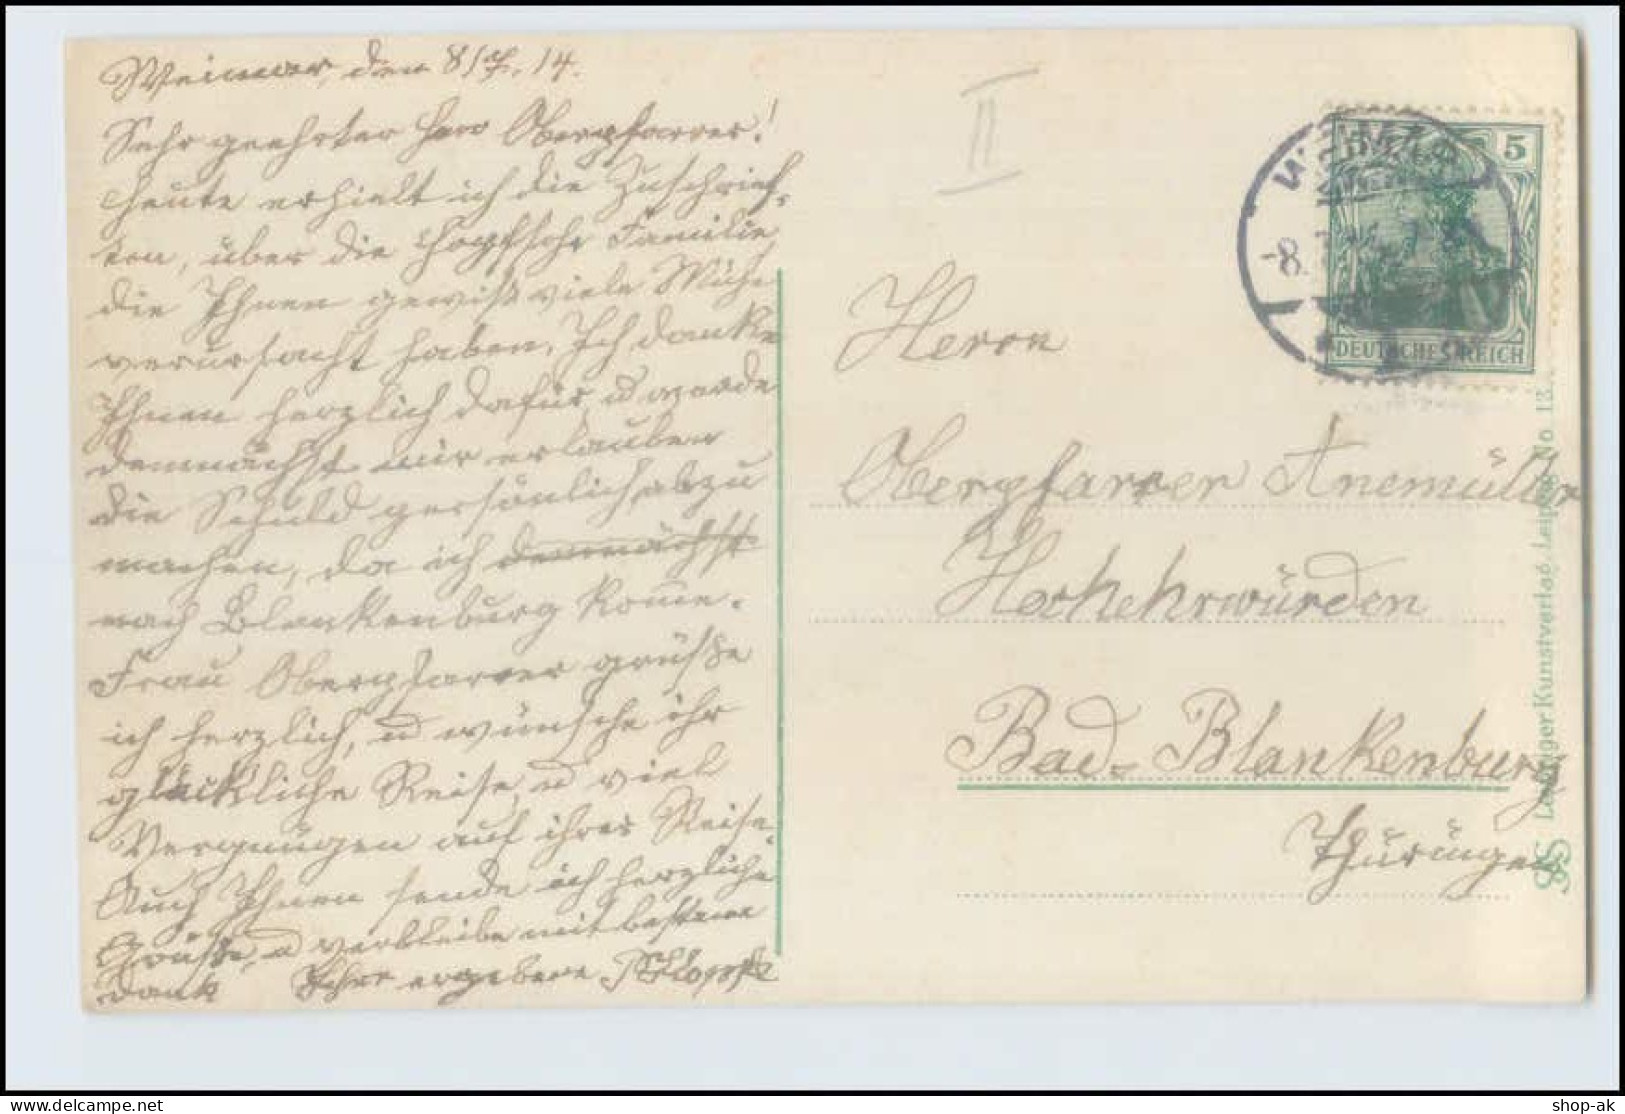 Weimar, den 8/7. 14.
Sehr geehrter Herr Oberpfarrer!
Heute erhielt ich die Zuschrief-
ten, über die Hopfsche Familie
die Ihnen gewiß viele Mühe
verursacht haben. Ich danke
Ihnen herzlich dafür, u werde
demnächst mir erlauben
die Schuld persönlich abzu
machen, da ich demnächst
nach Blankenburg komme.
Frau Oberpfarrer grüße
ich herzlich, u wünsche ihr
glückliche Reise, u viel
Vergnügen auf ihrer Reise.
Auch Ihnen sende ich herzliche
Grüße, u verbleibe mit bestem
Dank Ihre ergebene
II
WEIMAR
-8.7.
5
DEUTSCHES REICH
Herrn
Oberpfarrer Anemüller
Hochehrwürden
Bad-Blankenburg
Thüringen
Leipziger Kunstverlag, Leipzig No 13
shop-ak